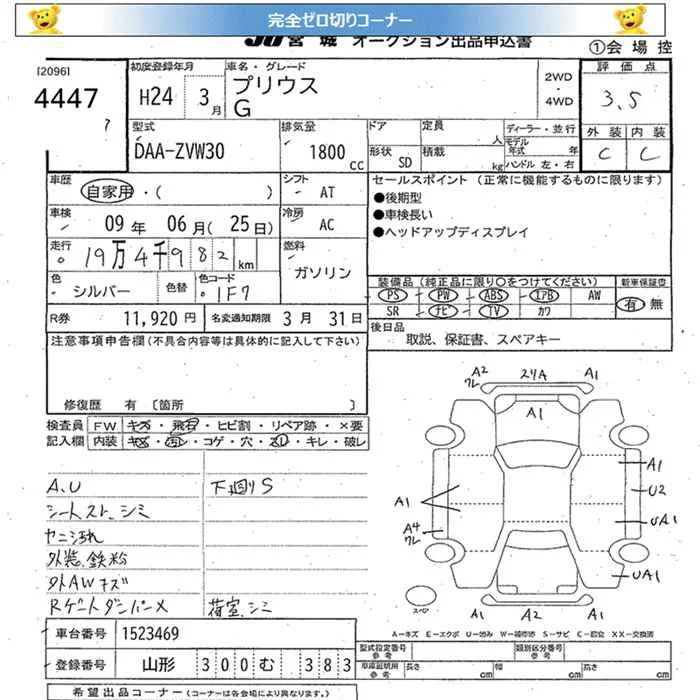 完全ゼロ切りコーナー
JU宮城 オークション出品申込書
①会場控
[2096]
4447
初度登録年月
H24 3月
車名・グレード
プリウス
G
2WD
・
4WD
評価点
3.5
外装 内装
C C
型式
DAA-ZVW30
排気量
1800 cc
ドア 定員 人
形状 SD 積載 kg
ディーラー・並行
モデル年式 年
ハンドル 左・右
車歴 自家用・( )
シフト AT
車検 09年 06月(25日)
冷房 AC
走行 19万4千982km
燃料 ガソリン
色 シルバー 色替 色コード 1F7
R券 11,920円 名変通知期限 3月 31日
セールスポイント (正常に機能するものに限ります)
●後期型
●車検長い
●ヘッドアップディスプレイ
装備品(純正品に限り○をつけてください) 新車保証書
PS PW ABS エアB AW
SR ナビ TV カワ
有 無
後日品
取説、保証書、スペアキー
注意事項申告欄(不具合内容等は具体的に記入して下さい)
修復歴 有 [箇所 ]
検査員 FW キズ・飛石・ヒビ割・リペア跡・×要
記入欄 内装 キズ・コゲ・穴・キレ・破レ
A.U
下廻りS
シートスレ、シミ
ヤニ汚れ
外装鉄粉
外AWキズ
Rゲートダンパー×
荷室シミ
A2 スリA A1
クレ
A1
A1
A1
U2
UA1
A4
クレ
UA1
スペア
A1 A2 A1
A-キズ E-エクボ U-凹み W-補修跡 S-サビ C-腐食 XX-交換済
車台番号 1523469
登録番号 山形 300 む 383
型式指定番号
参考
類別区分番号
参考
車庫証明用
参考
長さ cm 幅 cm 高さ cm
希望出品コーナー(コーナーは各会場により異なります。)